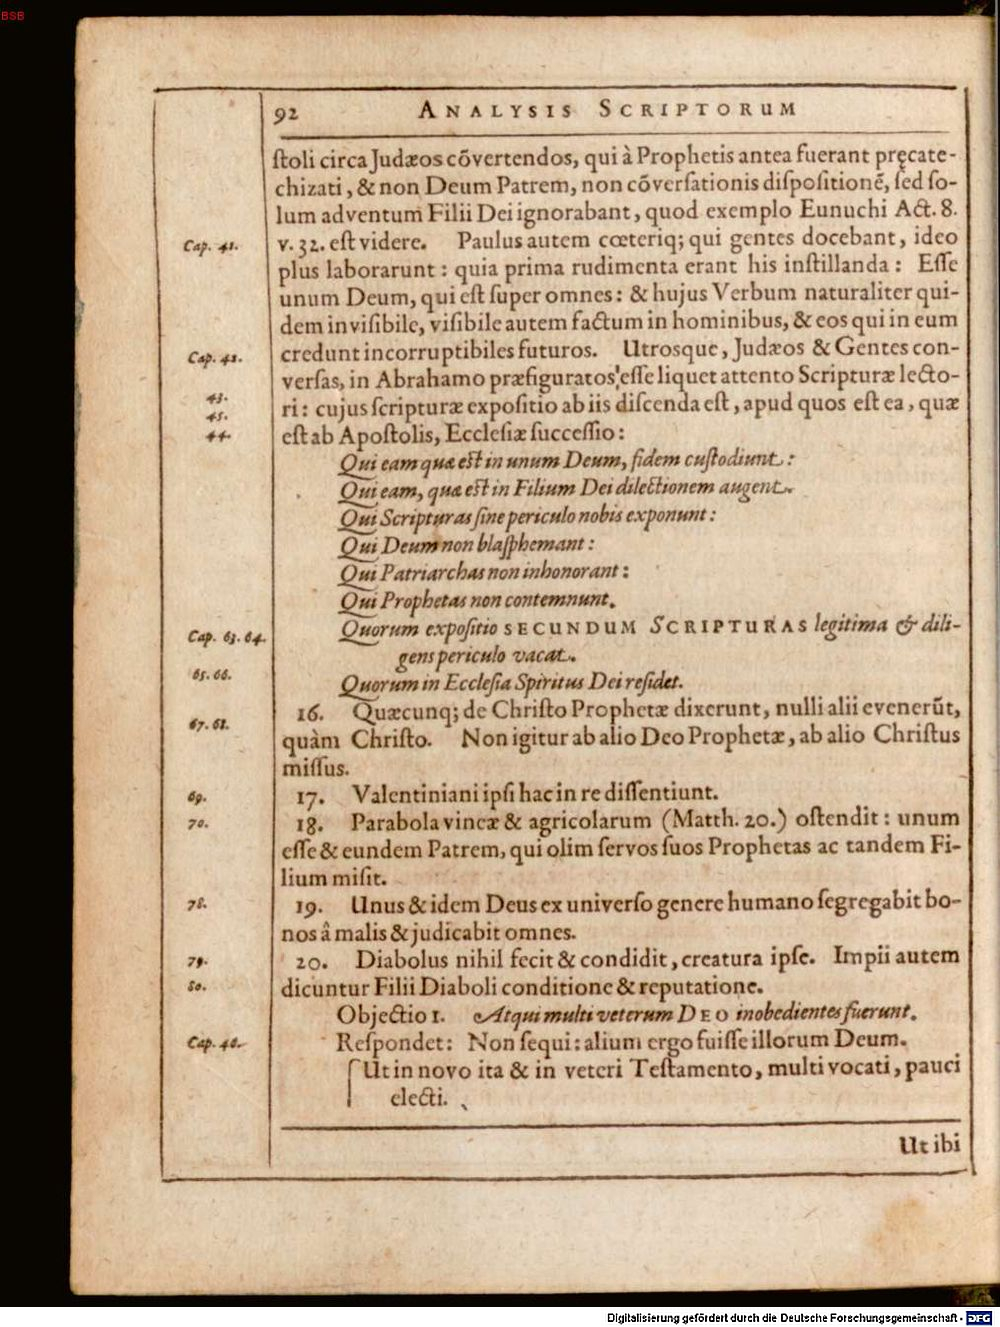 BSB
92 ANALYSIS SCRIPTORUM
ſtoli circa Judæos cõvertendos, qui à Prophetis antea fuerant pręcate-
chizati, & non Deum Patrem, non cõverſationis diſpoſitionẽ, ſed ſo-
lum adventum Filii Dei ignorabant, quod exemplo Eunuchi Act. 8.
Cap. 41. v. 32. eſt videre. Paulus autem cœteriq; qui gentes docebant, ideo
plus laborarunt: quia prima rudimenta erant his inſtillanda: Eſſe
unum Deum, qui eſt ſuper omnes: & hujus Verbum naturaliter qui-
dem inviſibile, viſibile autem factum in hominibus, & eos qui in eum
Cap. 42. credunt incorruptibiles futuros. Utrosque, Judæos & Gentes con-
verſas, in Abrahamo præfiguratos eſſe liquet attento Scripturæ lecto-
43.
45. ri: cujus ſcripturæ expoſitio ab iis diſcenda eſt, apud quos eſt ea, quæ
44. eſt ab Apoſtolis, Eccleſiæ ſucceſſio:
Qui eam quæ eſt in unum Deum, fidem cuſtodiunt:
Qui eam, quæ eſt in Filium Dei dilectionem augent.
Qui Scripturas ſine periculo nobis exponunt:
Qui Deum non blaſphemant:
Qui Patriarchas non inhonorant:
Qui Prophetas non contemnunt.
Cap. 63. 64. Quorum expoſitio SECUNDUM SCRIPTURAS legitima & dili-
gens periculo vacat.
65. 66. Quorum in Eccleſia Spiritus Dei reſidet.
67. 68. 16. Quæcunq; de Chriſto Prophetæ dixerunt, nulli alii evenerũt,
quàm Chriſto. Non igitur ab alio Deo Prophetæ, ab alio Chriſtus
miſſus.
69. 17. Valentiniani ipſi hac in re diſſentiunt.
70. 18. Parabola vineæ & agricolarum (Matth. 20.) oſtendit: unum
eſſe & eundem Patrem, qui olim ſervos ſuos Prophetas ac tandem Fi-
lium miſit.
78. 19. Unus & idem Deus ex univerſo genere humano ſegregabit bo-
nos â malis & judicabit omnes.
79. 20. Diabolus nihil fecit & condidit, creatura ipſe. Impii autem
80. dicuntur Filii Diaboli conditione & reputatione.
Objectio 1. Atqui multi veterum DEO inobedientes fuerunt.
Cap. 40. Reſpondet: Non ſequi: alium ergo fuiſſe illorum Deum.
Ut in novo ita & in veteri Teſtamento, multi vocati, pauci
electi.
Ut ibi
Digitalisierung gefördert durch die Deutsche Forschungsgemeinschaft - DFG